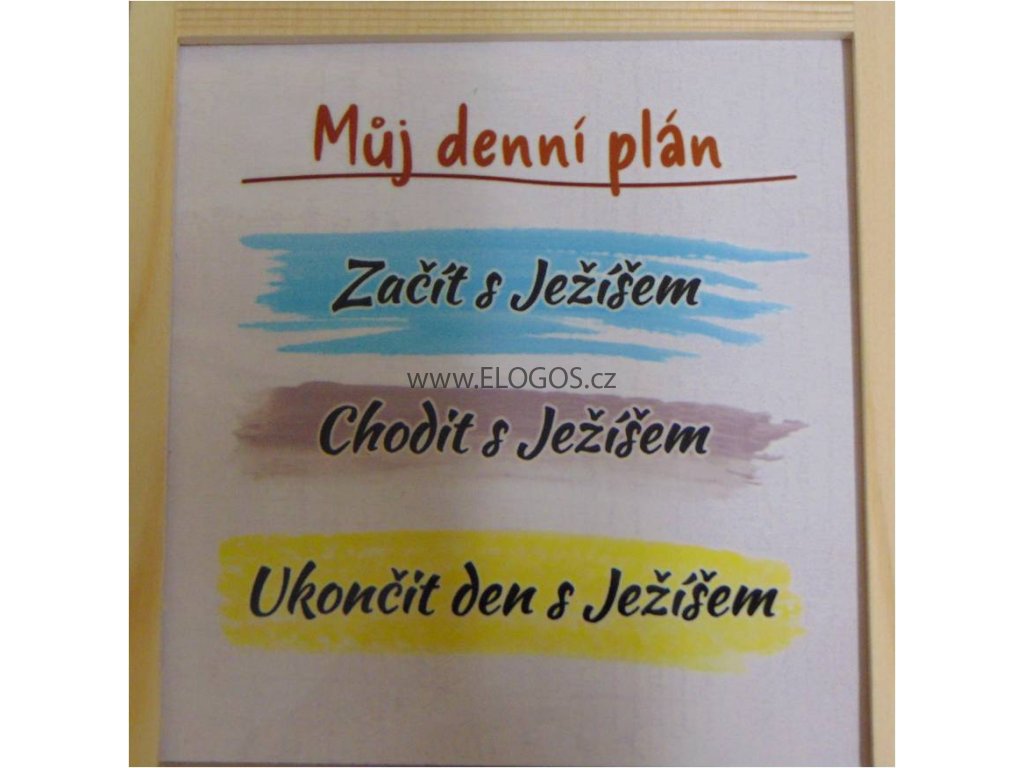 Můj denní plán
Začít s Ježíšem
www.ELOGOS.cz
Chodit s Ježíšem
Ukončit den s Ježíšem